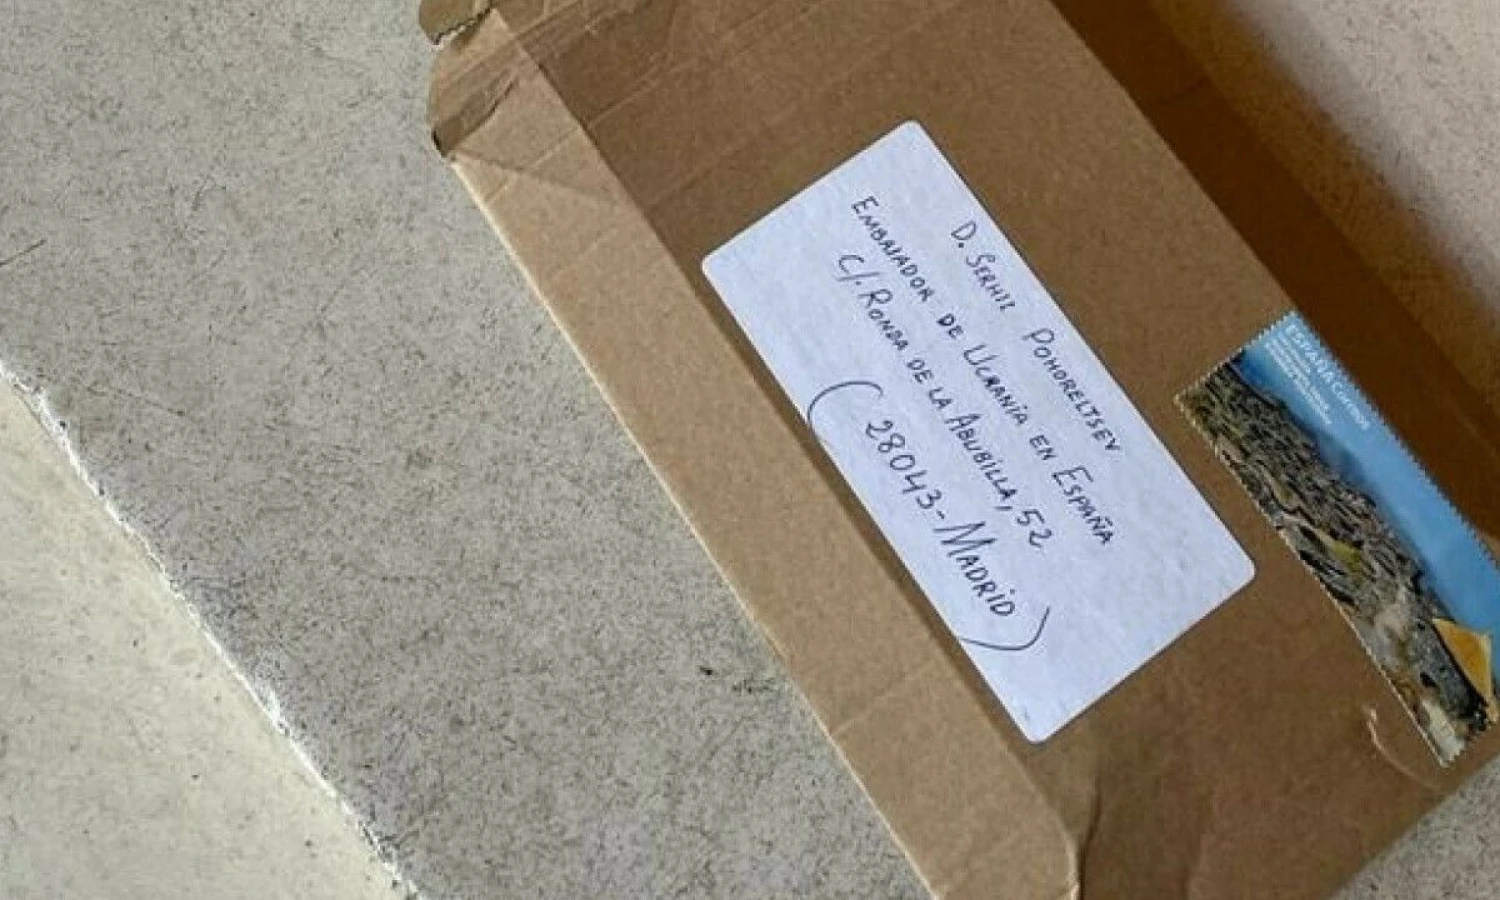 D. SERHII POHORELTSEV
EMBAJADOR DE UCRANIA EN ESPAÑA
C/. RONDA DE LA ABUBILLA, 52
(28043-MADRID)
ESPAÑA Correos